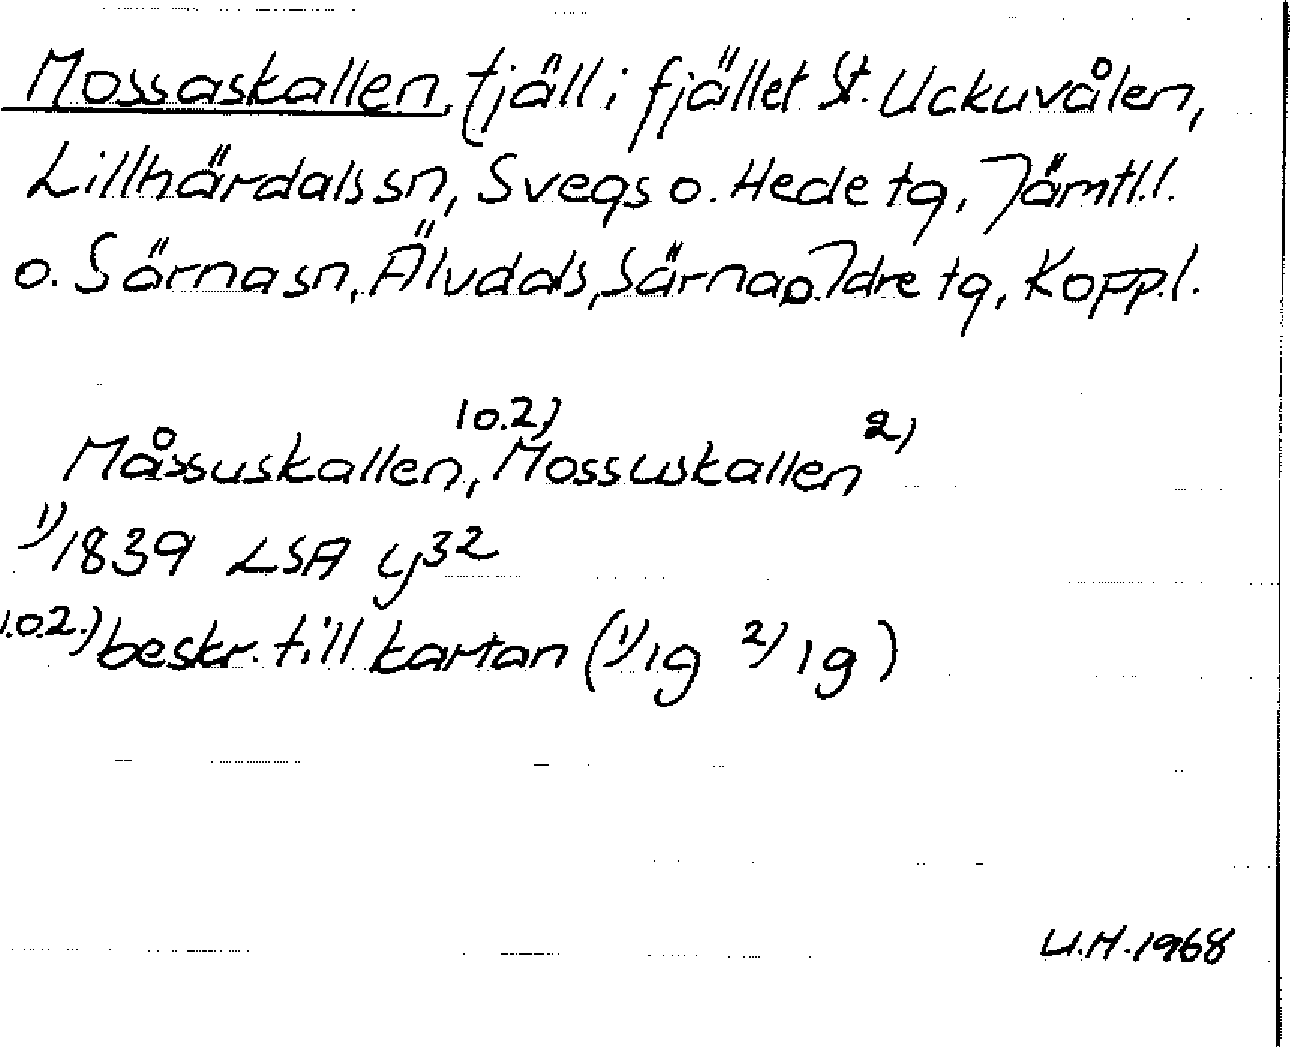 Mossaskallen, fjäll i fjället St. Uckuvålen,
Lillhärdals sn, Svegs o. Hede tg, Jämtl.l.
o. Särna sn, Älvdals, Särna o. Idre tg, Kopp.l.
Måssuskallen, 1 o. 2) Mossuskallen 2)
1) 1839 LSA y32
1. o. 2.) beskr. till kartan (1) 1g 2) 1g)
U.H. 1968